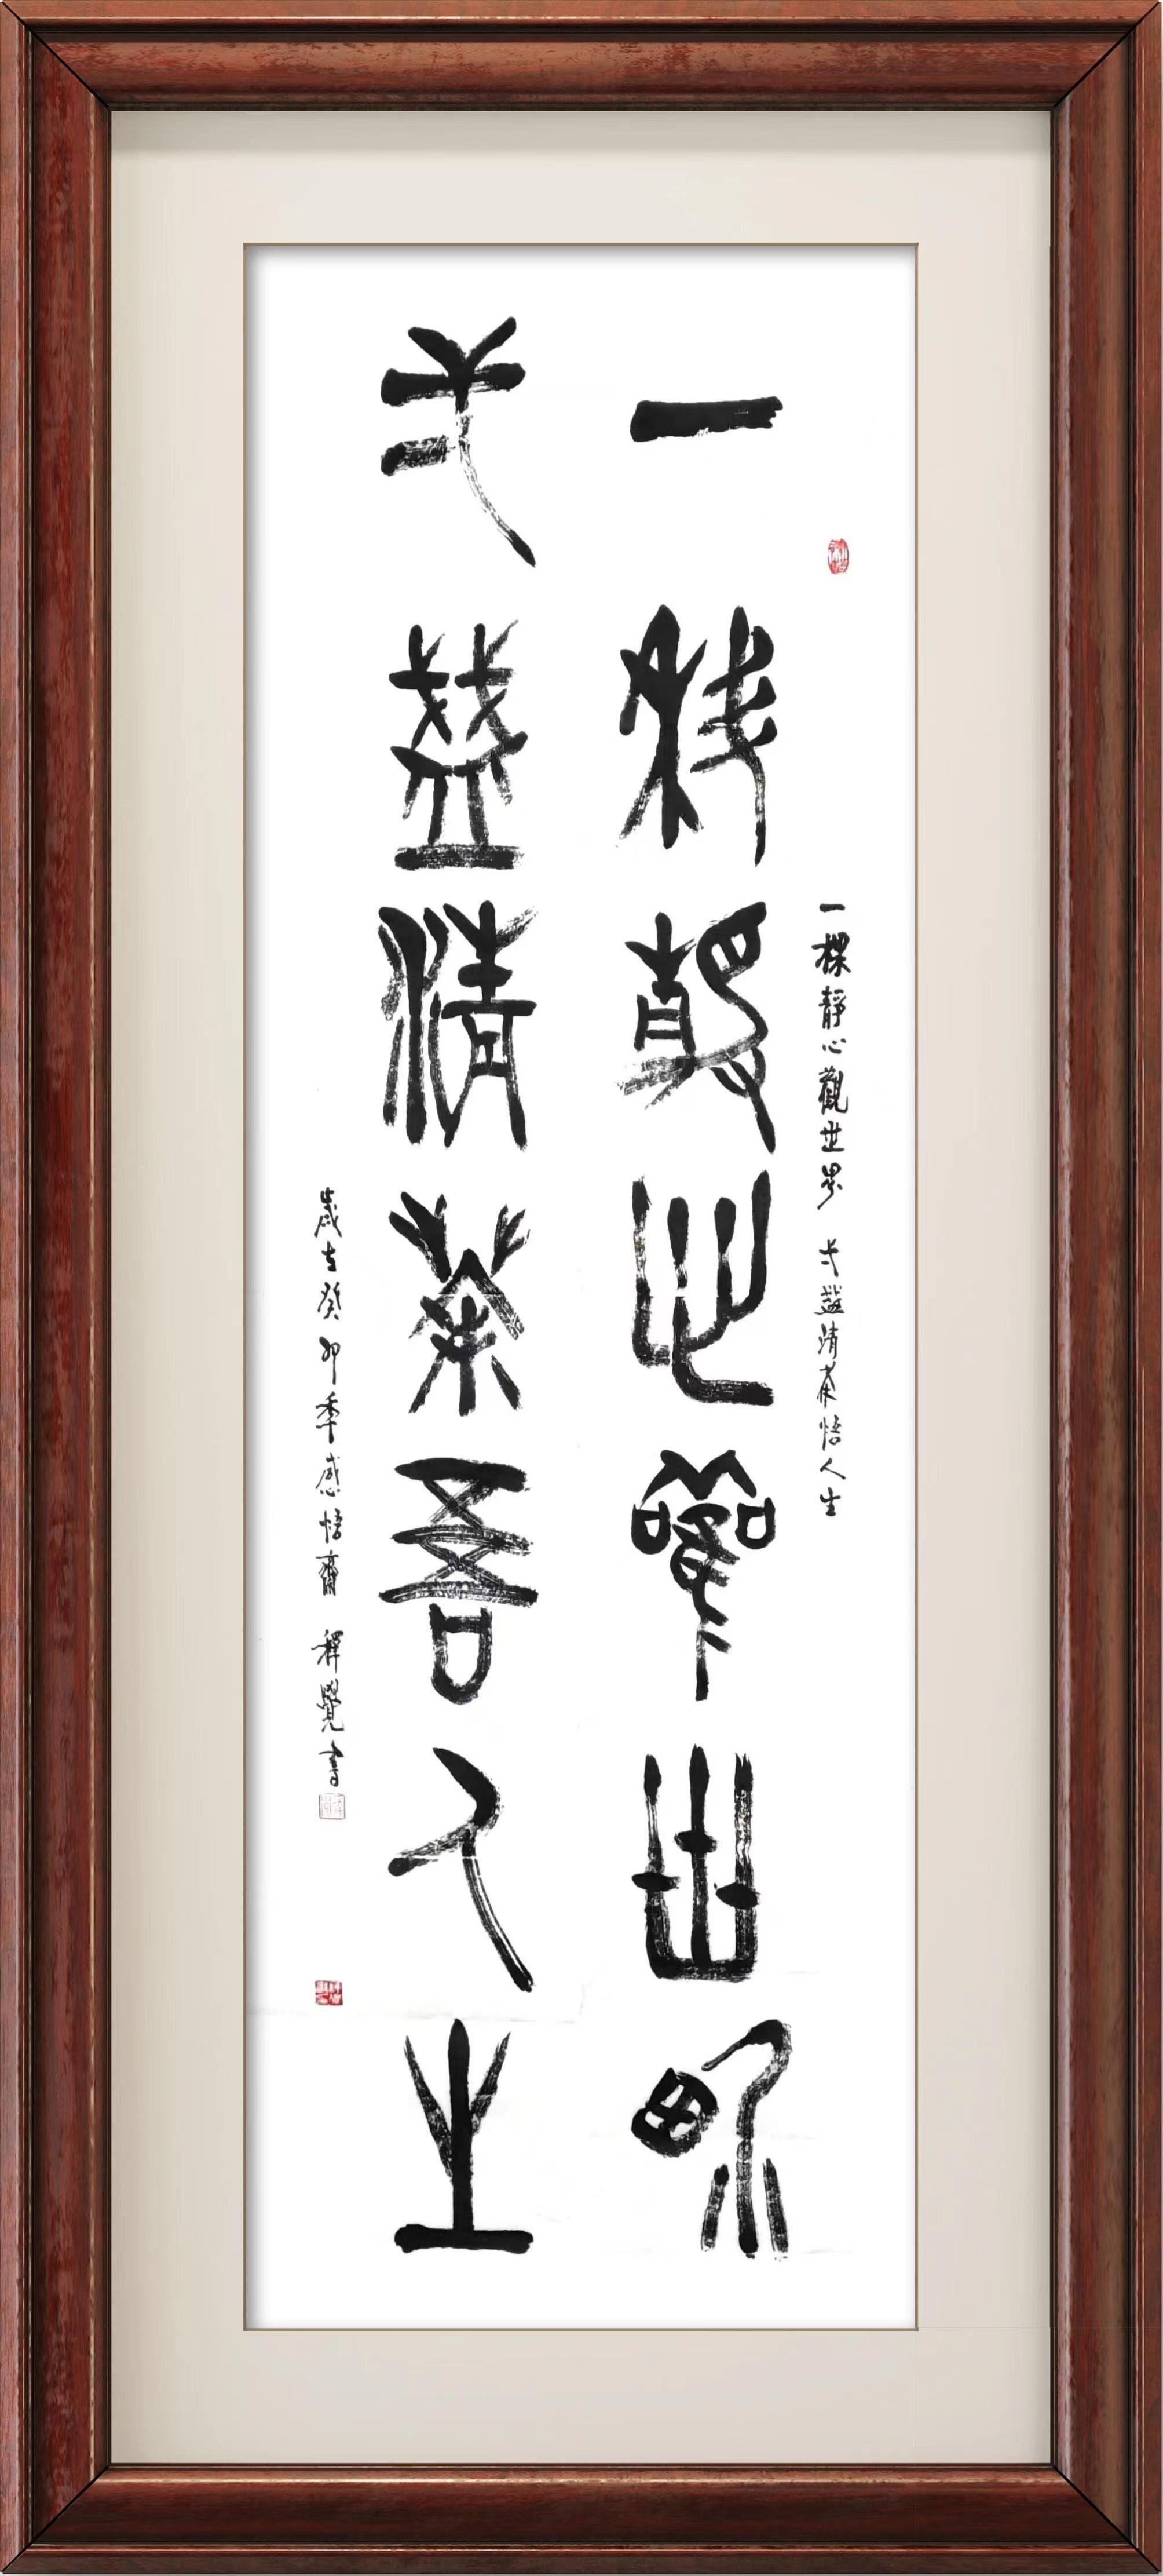 一棵靜心觀世界 弌盞清茶悟人生
一棵靜心觀世界
弌盞清茶吾人生
歲在癸卯秊感悟齋 釋覺書